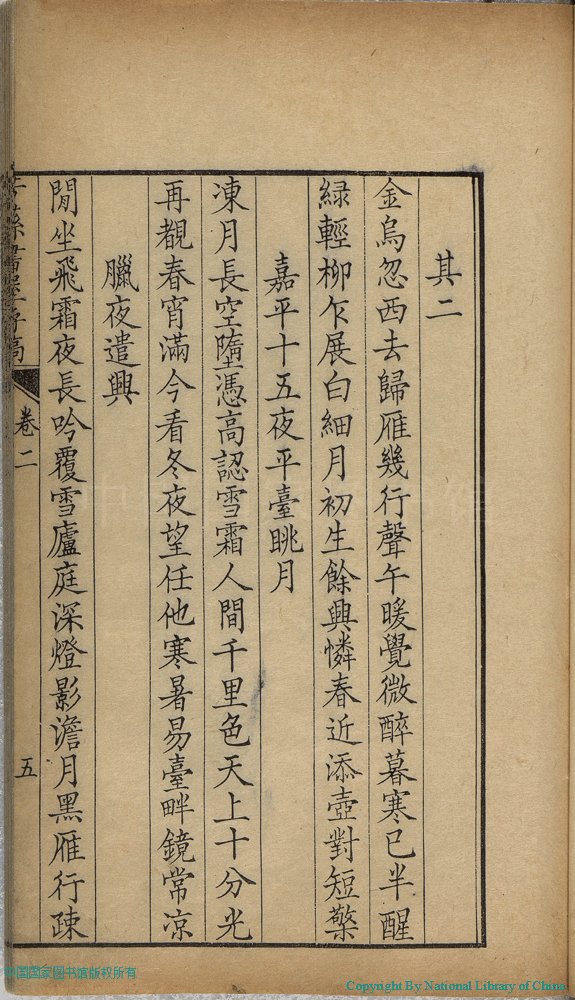 其二
金烏忽西去歸雁幾行聲午暖覺微醉暮寒已半醒
緑輕柳乍展白細月初生餘興憐春近添壺對短檠
嘉平十五夜平臺眺月
凍月長空墮憑高認雪霜人間千里色天上十分光
再覩春宵滿今看冬夜望任他寒暑易臺畔鏡常凉
臘夜遣興
閒坐飛霜夜長吟覆雪廬庭深燈影澹月黑雁行疎
卷二
五
中国国家图书馆版权所有
Copyright By National Library of China